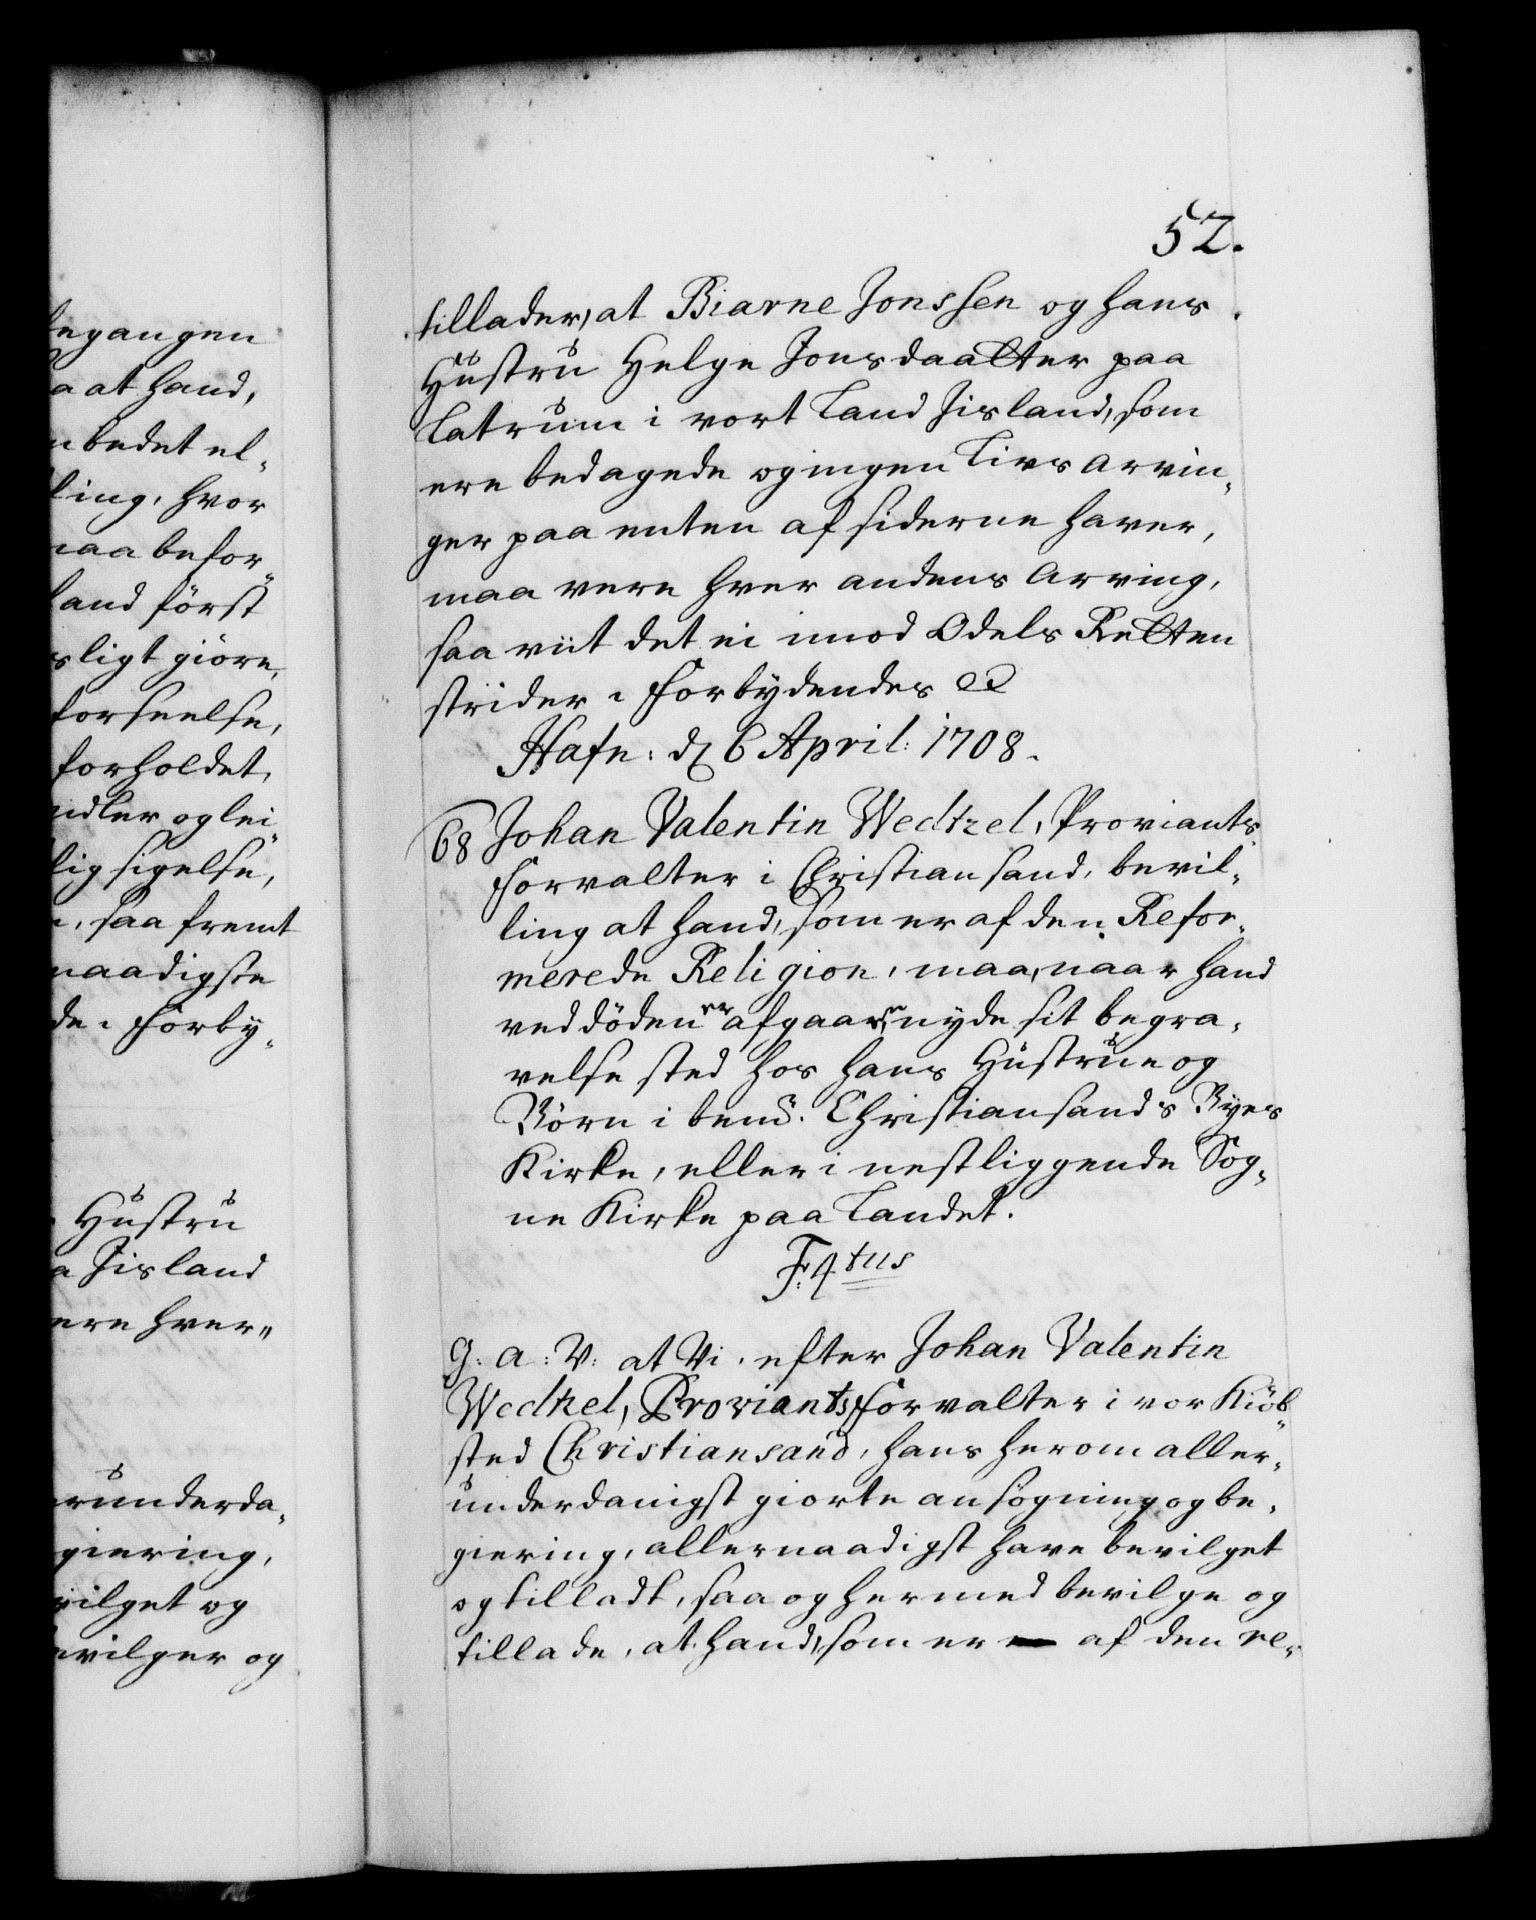 egangen
a at hand,
n bedet el-
ling, hvor
maa befor-
hand först
sligt giöre,
forseelse,
forholdet,
ndler og lei-
lig sigelse,
saa fremt
naadigste
de. Forby-
Hustru
a Jisland
ere hver-
erunderda-
giering,
vilget og
evilger og
52.
tillader, at Biarne Jonssen og hans
Hustru Helge Jonsdaatter paa
Latrum i vort Land Jisland, som
ere bedagede og ingen Livs Arvin-
ger paa enten af siderne haver,
maa vere hver andens Arving,
saa viit det ei imod Odels Retten
strider. Forbydendes &
Hafn: d 6 April: 1708.
68 Johan Valentin Wedtzel, Proviants
Forvalter i Christiansand, bevil-
ling at hand, som er af den Refor-
merede Religion, maa, naar hand
ved döden er afgaaen, nyde sit begra-
velse sted hos hans Hustrue og
Börn i bem. Christiansands Byes
Kirke, eller i nestliggende Sog-
ne Kirke paa Landet.
F: 4tus
G: A: V: at Vi, efter Johan Valentin
Wedtzel, Proviants Forvalter i vor Kiöb-
sted Christiansand, hans herom aller-
underdanigst giorte ansögning og be-
giering, allernaadigst have bevilget
og tilladt, saa og hermed bevilge og
tillade, at hand, som er af den re-